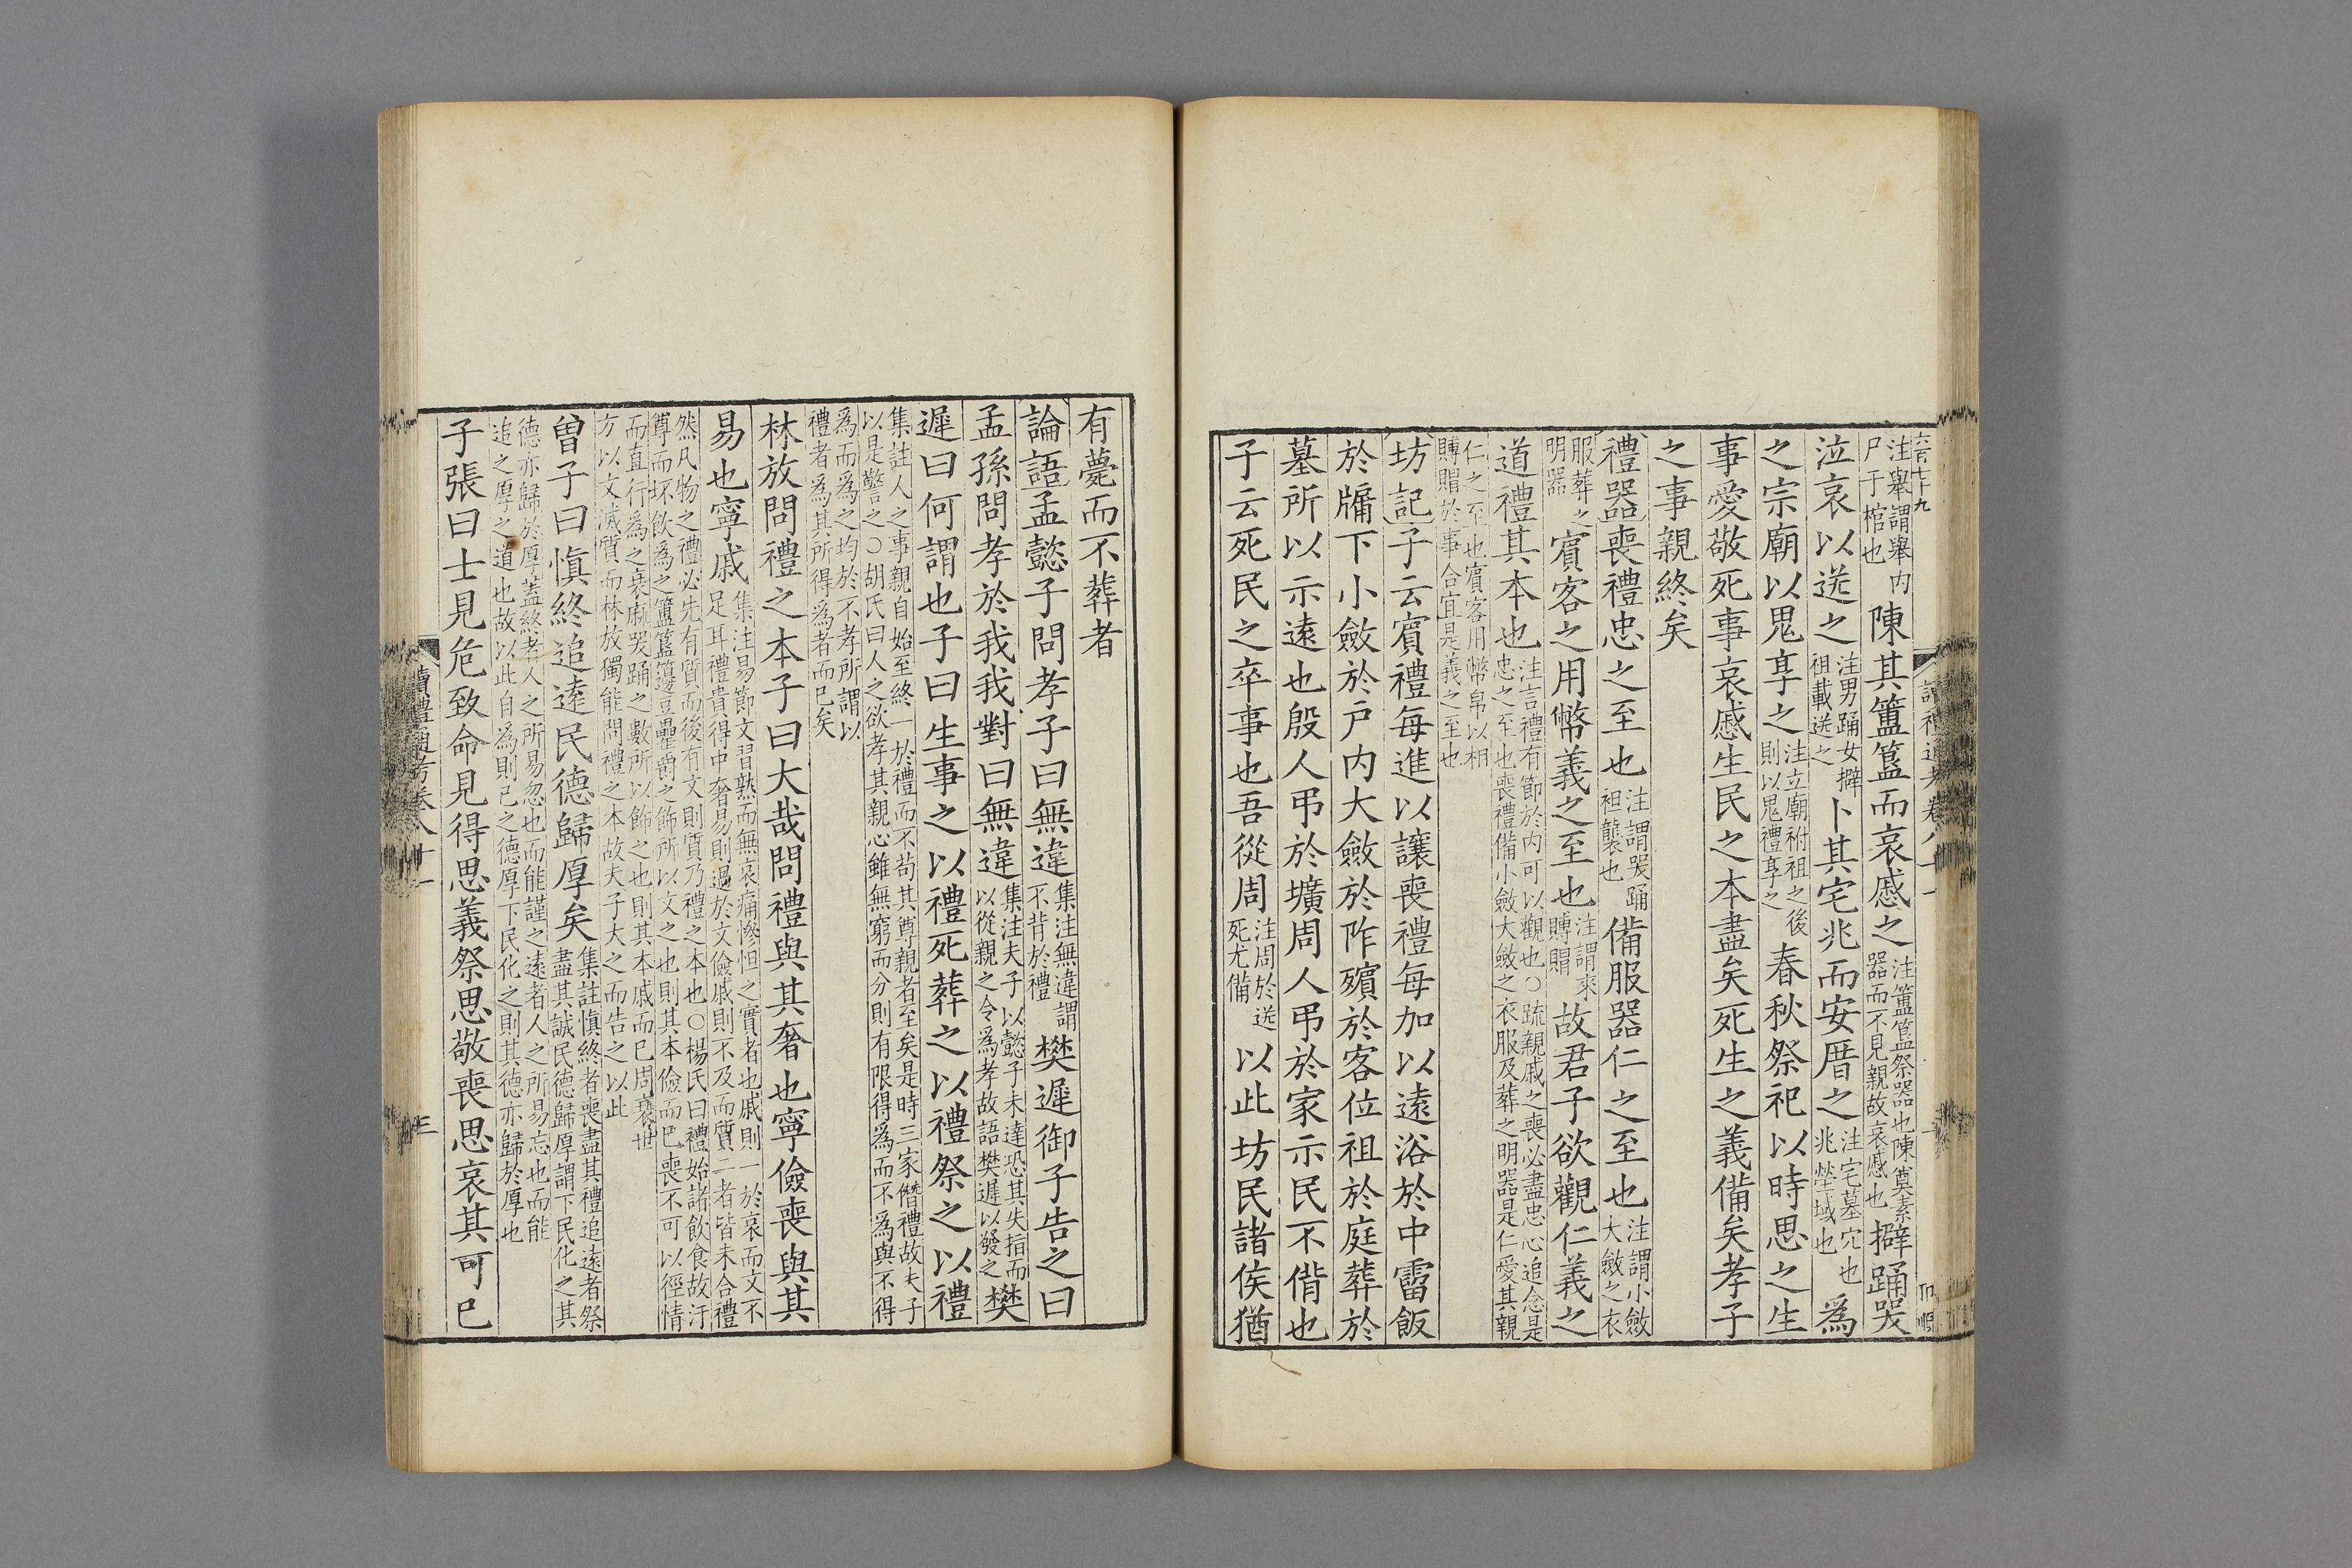 六百七十九
注舉謂舉内尸于棺也陳其簠簋而哀慼之注簠簋祭器也陳奠素器而不見親故哀慼也擗踊哭
泣哀以送之注男踊女擗祖載送之卜其宅兆而安厝之注宅墓穴也兆塋域也爲
之宗廟以鬼享之注立廟祔祖之後則以鬼禮享之春秋祭祀以時思之生
事愛敬死事哀慼生民之本盡矣死生之義備矣孝子
之事親終矣
禮器喪禮忠之至也注謂哭踊袒襲也備服器仁之至也注謂小斂大斂之衣
服葬之明器賓客之用幣義之至也注謂來賻賵故君子欲觀仁義之
道禮其本也注言禮有節於内可以觀也○疏親戚之喪必盡忠心追念是忠之至也喪禮備小斂大斂之衣服及葬之明器是仁愛其親
仁之至也賓客用幣帛以相賻賵於事合宜是義之至也
坊記子云賓禮每進以讓喪禮每加以遠浴於中霤飯
於牖下小斂於戶内大斂於阼殯於客位祖於庭葬於
墓所以示遠也殷人弔於壙周人弔於家示民不偝也
子云死民之卒事也吾從周注周於送死尤備以此坊民諸侯猶
讀禮通考卷八十一
有薨而不葬者
論語孟懿子問孝子曰無違集注無違謂不背於禮樊遲御子告之曰
孟孫問孝於我我對曰無違集注夫子以懿子未達恐其失指而以從親之令爲孝故語樊遲以發之樊
遲曰何謂也子曰生事之以禮死葬之以禮祭之以禮
集註人之事親自始至終一於禮而不苟其尊親者至矣是時三家僭禮故夫子以是警之○胡氏曰人之欲孝其親心雖無窮而分則有限得爲而不爲與不得
爲而爲之均於不孝所謂以禮者爲其所得爲者而已矣
林放問禮之本子曰大哉問禮與其奢也寧儉喪與其
易也寧戚集注易節文習熟而無哀痛慘怛之實者也戚則一於哀而文不足耳禮貴得中奢易則過於文儉戚則不及而質二者皆未合禮
然凡物之禮必先有質而後有文則質乃禮之本也○楊氏曰禮始諸飲食故汙尊而抔飲爲之簠簋籩豆罍爵之飾所以文之也則其本儉而已喪不可以徑情
而直行爲之衰麻哭踊之數所以飾之也則其本戚而已周衰世方以文滅質而林放獨能問禮之本故夫子大之而告之以此
曾子曰愼終追遠民德歸厚矣集註愼終者喪盡其禮追遠者祭盡其誠民德歸厚謂下民化之其
德亦歸於厚蓋終者人之所易忽也而能謹之遠者人之所易忘也而能追之厚之道也故以此自爲則己之德厚下民化之則其德亦歸於厚也
子張曰士見危致命見得思義祭思敬喪思哀其可已
讀禮通考卷八十一
三